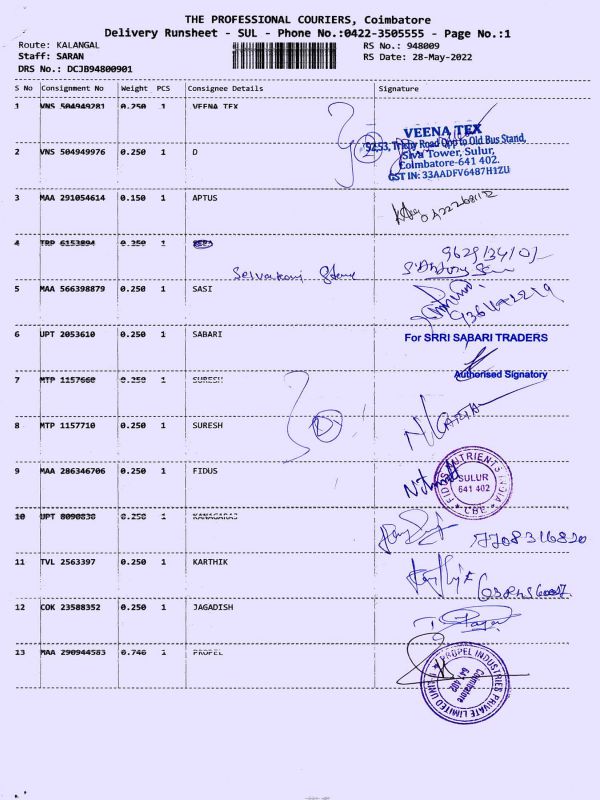 THE PROFESSIONAL COURIERS, Coimbatore
Delivery Runsheet - SUL - Phone No.:0422-3505555 - Page No.:1
Route: KALANGAL RS No.: 948009
Staff: SARAN RS Date: 28-May-2022
DRS No.: DCJB94800901
S No Consignment No Weight PCS Consignee Details Signature
1 VNS 504949281 0.250 1 VEENA TEX
VEENA TEX
52,53, Trichy Road Opp to Old Bus Stand,
Siva Tower, Sulur,
Coimbatore-641 402.
GST IN: 33AADFV6487H1ZU
2 VNS 504949976 0.250 1 D
3 MAA 291054614 0.150 1 APTUS
4 TRP 6153894 0.250 1
5 MAA 566398879 0.250 1 SASI
6 UPT 2053610 0.250 1 SABARI For SRRI SABARI TRADERS
Authorised Signatory
7 MTP 1157660 0.250 1 SURESH
8 MTP 1157710 0.250 1 SURESH
9 MAA 286346706 0.250 1 FIDUS
FIDUS NUTRIENTS INDIA
SULUR
641 402
* CBE *
10 UPT 8090830 0.250 1 KANAGARAJ
7708316820
11 TVL 2563397 0.250 1 KARTHIK
12 COK 23588352 0.250 1 JAGADISH
13 MAA 290944583 0.746 1 PROPEL
PROPEL INDUSTRIES PRIVATE LIMITED
Coimbatore
641 402